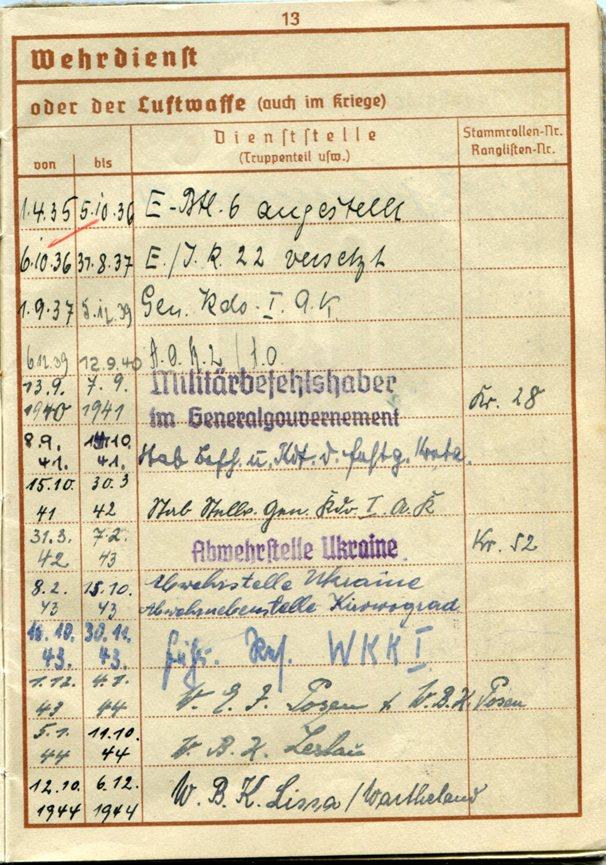 13
Wehrdienst
oder der Luftwaffe (auch im Kriege)
Dienststelle
(Truppenteil usw.)
Stammrollen-Nr.
Ranglisten-Nr.
von bis
1.4.35 5.10.36 E-Btl. 6 angestellt
6.10.36 31.8.37 E./I.R. 22 versetzt
1.9.37 5.12.39 Gen. Kdo. I. A.K.
6.12.39 12.9.40 A.O.K. 2
13.9. 7.9. Militärbefehlshaber
1940 1941 im Generalgouvernement Kr. 28
8.9. 14.10.
41. 41. Stab Befh. u. Kdt. d. Festg. Kreta
15.10. 30.3
41 42 Stab Stellv. Gen. Kdo I. A. K
31.3. 7.2.
42 43 Abwehrstelle Ukraine Kr. 52
8.2. 15.10. Abwehrstelle Ukraine
43 43 Abwehrnebenstelle Kirowograd
16.10. 30.11.
43. 43. Führ. Res. WKK I
1.12. 4.1.
43 44 Posen W.B.K. Posen
5.1. 11.10.
44 44 W. B. K.
12.10. 6.12.
1944 1944 W. B. K. Lissa/Wartheland